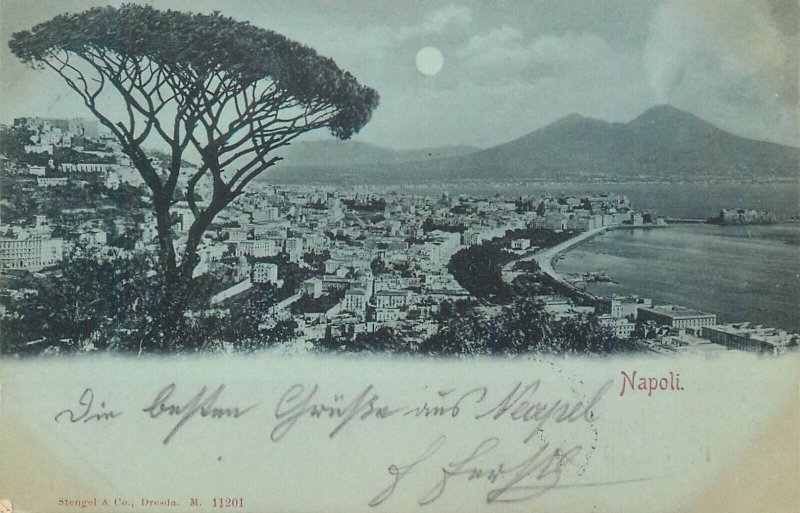 Napoli.
Die besten Grüße aus Neapel
Stengel & Co., Dresda. M. 11201